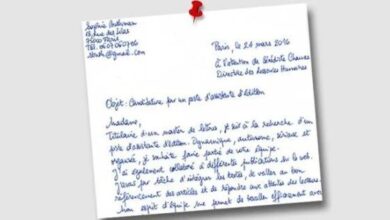 Sophie
13, rue des Lilas
75000 Paris
Paris, le 21 mars 2016
A l'attention de Bénédicte
Directrice des Ressources Humaines
Objet : Candidature pour un poste d'assistante d'édition
Madame,
Titulaire d'un master de lettres, je suis à la recherche d'un
poste d'assistante d'édition. Dynamique, autonome, sérieuse et
organisée, je souhaite faire partie de votre équipe.
J'ai également collaboré à différentes publications sur le web.
J'avais pour tâche d'intégrer les textes, de veiller au bon
référencement des articles et de répondre aux attentes des lecteurs.
Mon esprit d'équipe me permet de travailler efficacement avec